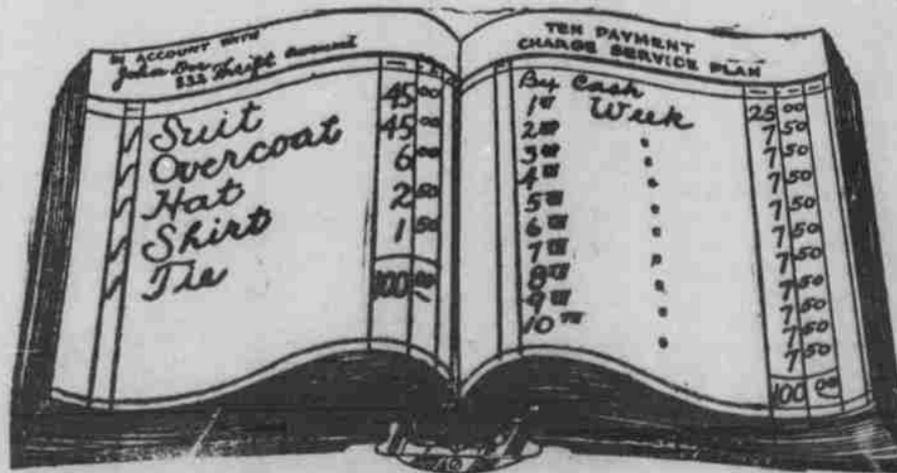 IN ACCOUNT WITH
John Doe
$$$ Thrift Account
Suit 45 00
Overcoat 45 00
Hat 6 00
Shirt 2 50
Tie 1 50
100 00
TEN PAYMENT
CHARGE SERVICE PLAN
By Cash 25 00
1st Week 7 50
2nd " 7 50
3rd " 7 50
4th " 7 50
5th " 7 50
6th " 7 50
7th " 7 50
8th " 7 50
9th " 7 50
10th " 7 50
100 00